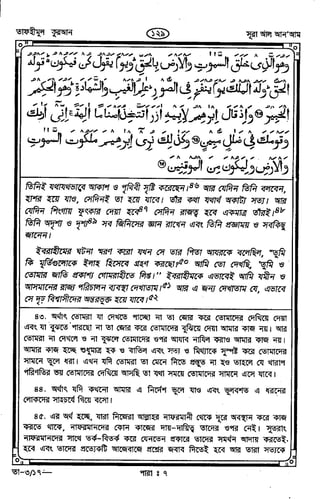 তাফহীমুল কুরআন ১২৯ সূরা আল আন'আম
وَهُوَ الَّذِي خَلَقَ السَّمٰوٰتِ وَالْأَرْضَ بِالْحَقِّ ۖ وَيَوْمَ يَقُولُ كُنْ فَيَكُونُ ۚ قَوْلُهُ
الْحَقُّ ۚ وَلَهُ الْمُلْكُ يَوْمَ يُنْفَخُ فِي الصُّورِ ۚ عٰلِمُ الْغَيْبِ وَالشَّهَادَةِ ۚ وَهُوَ الْحَكِيمُ
الْخَبِيرُ وَإِذْ قَالَ إِبْرٰهِيمُ لِأَبِيهِ آزَرَ أَتَتَّخِذُ أَصْنَامًا آلِهَةً ۖ إِنِّي أَرٰىكَ
وَقَوْمَكَ فِي ضَلٰلٍ مُبِينٍ وَكَذٰلِكَ نُرِي إِبْرٰهِيمَ مَلَكُوتَ السَّمٰوٰتِ
وَالْأَرْضِ وَلِيَكُونَ مِنَ الْمُوقِنِينَ
তিনিই যথাযথভাবে আকাশ ও পৃথিবী সৃষ্টি করেছেন।৪৬ আর যেদিন তিনি বলবেন,
হাশর হয়ে যাও, সেদিনই তা হয়ে যাবে। তাঁর কথা যথার্থ অকাট্য সত্য। আর
যেদিন শিংগায় ফুৎকার দেয়া হবে৪৭ সেদিন রাজত্ব হবে একমাত্র তাঁরই।৪৮
তিনি অদৃশ্য ও দৃশ্য৪৯ সব জিনিসের জ্ঞান রাখেন এবং তিনি প্রজ্ঞাময় ও সবকিছু
জানেন।
ইবরাহীমের ঘটনা স্মরণ করো যখন সে তার পিতা আযরকে বলেছিল, "তুমি
কি মূর্তিগুলোকে ইলাহ হিসেবে গ্রহণ করছো?৫০ আমি তো দেখছি, তুমি ও
তোমার জাতি প্রকাশ্য গোমরাহীতে লিপ্ত।" ইবরাহীমকে এভাবেই আমি যমীন ও
আসমানের রাজ্য পরিচালন ব্যবস্থা দেখাতাম।৫১ আর এ জন্য দেখাতাম যে, এভাবে
সে দৃঢ় বিশ্বাসীদের অন্তরভুক্ত হয়ে যাবে।৫২
৪৩. অর্থাৎ তোমরা যা দেখতে পাচ্ছো না তা জোর করে তোমাদের দেখিয়ে দেয়া
এবং যা বুঝতে পারছো না তা জোর করে তোমাদের বুঝিয়ে দেয়া আমার কাজ নয়। আর
তোমরা না দেখলে ও না বুঝলে তোমাদের ওপর আযাব নাযিল করাও আমার কাজ নয়।
আমার কাজ হচ্ছে শুধুমাত্র হক ও বাতিল এবং সত্য ও মিথ্যাকে সুস্পষ্ট করে তোমাদের
সামনে তুলে ধরা। এখন যদি তোমরা তা মেনে নিতে প্রস্তুত না হও তাহলে যে খারাপ
পরিণতির ভয় তোমাদের দেখিয়ে আসছি তা যথা সময়ে তোমাদের সামনে এসে যাবে।
৪৪. অর্থাৎ যদি কখনো আমার এ নির্দেশ ভুলে যাও এবং ভুলবশত এ ধরনের
লোকদের সাহচর্যে গিয়ে বসো।
৪৫. এর অর্থ হচ্ছে, যারা নিজেরা আল্লাহর নাফরমানী থেকে দূরে অবস্থান করে কাজ
করতে থাকে, নাফরমানদের কোন কাজের দায়-দায়িত্ব তাদের ওপর নেই। সুতরাং
নাফরমানদের সাথে তর্ক-বিতর্ক করে যেনতেন প্রকারে তাদের সমর্থন আদায় করতেই-
হবে এবং তাদের প্রত্যেকটি আজেবাজে প্রশ্নের জবাব দিতেই হবে আর তারা সত্যকে
তা-৩/১৭— পারা ঃ ৭